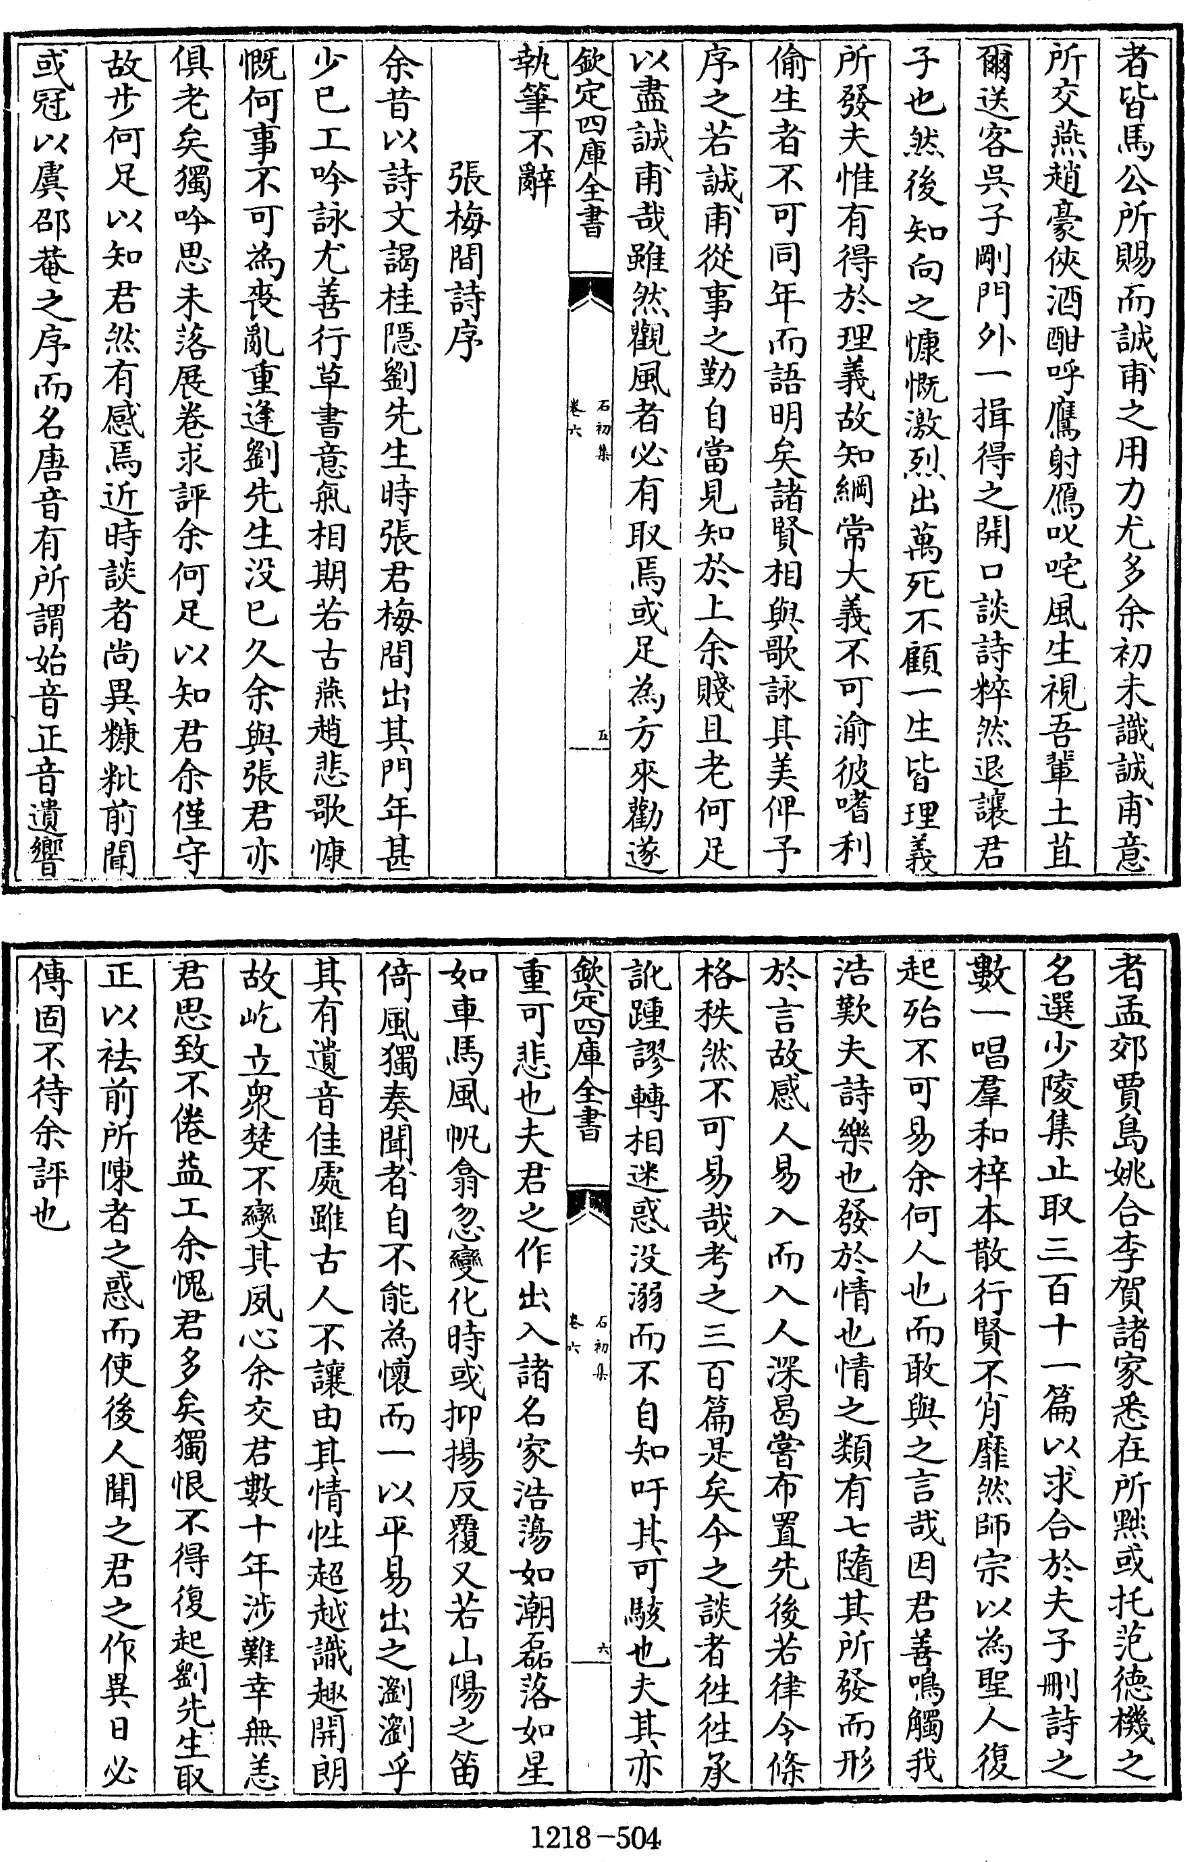 者皆馬公所賜而誠甫之用力尤多余初未識誠甫意
所交燕趙豪俠酒酣呼鷹射鴈叱咤風生視吾輩土苴
爾送客吳子剛門外一揖得之開口談詩粹然退讓君
子也然後知向之慷慨激烈出萬死不顧一生皆理義
所發夫惟有得於理義故知綱常大義不可渝彼嗜利
偷生者不可同年而語明矣諸賢相與歌詠其美俾予
序之若誠甫從事之勤自當見知於上余賤且老何足
以盡誠甫哉雖然觀風者必有取焉或足為方來勸遂
欽定四庫全書
石初集
卷六
五
執筆不辭
張梅間詩序
余昔以詩文謁桂隠劉先生時張君梅間出其門年甚
少已工吟詠尤善行草書意氣相期若古燕趙悲歌慷
慨何事不可為喪亂重逢劉先生沒已久余與張君亦
俱老矣獨吟思未落展卷求評余何足以知君余僅守
故步何足以知君然有感焉近時談者尚異糠粃前聞
或冠以虞邵菴之序而名唐音有所謂始音正音遺響
者孟郊賈島姚合李賀諸家悉在所黜或托范德機之
名選少陵集止取三百十一篇以求合於夫子刪詩之
數一唱羣和梓本散行賢不肖靡然師宗以為聖人復
起殆不可易余何人也而敢與之言哉因君善鳴觸我
浩歎夫詩樂也發於情也情之類有七隨其所發而形
於言故感人易入而入人深曷嘗布置先後若律令條
格秩然不可易哉考之三百篇是矣今之談者往往承
訛踵謬轉相迷惑沒溺而不自知吁其可駭也夫其亦
欽定四庫全書
石初集
卷六
六
重可悲也夫君之作出入諸名家浩蕩如潮磊落如星
如車馬風帆翕忽變化時或抑揚反覆又若山陽之笛
倚風獨奏聞者自不能為懷而一以平易出之瀏瀏乎
其有遺音佳處雖古人不讓由其情性超越識趣開朗
故屹立衆楚不變其夙心余交君數十年涉難幸無恙
君思致不倦益工余愧君多矣獨恨不得復起劉先生取
正以袪前所陳者之惑而使後人聞之君之作異日必
傳固不待余評也
1218-504